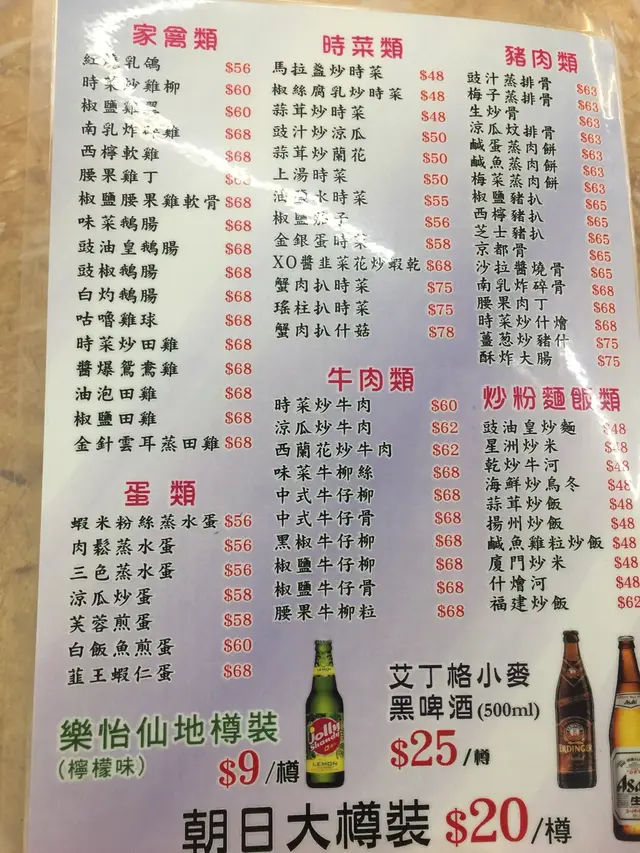 家禽類
紅燒乳鴿 $56
時菜炒雞柳 $60
椒鹽雞翼 $60
南乳炸碎雞 $68
西檸軟雞 $68
腰果雞丁
椒鹽腰果雞軟骨 $68
味菜鵝腸 $68
豉油皇鵝腸 $68
豉椒鵝腸 $68
白灼鵝腸 $68
咕嚕雞球 $68
時菜炒田雞 $68
醬爆鴛鴦雞 $68
油泡田雞 $68
椒鹽田雞 $68
金針雲耳蒸田雞 $68
蛋類
蝦米粉絲蒸水蛋 $56
肉鬆蒸水蛋 $56
三色蒸水蛋 $56
涼瓜炒蛋 $58
芙蓉煎蛋 $58
白飯魚煎蛋 $60
韮王蝦仁蛋 $68
時菜類
馬拉盞炒時菜 $48
椒絲腐乳炒時菜 $48
蒜茸炒時菜 $48
豉汁炒涼瓜 $50
蒜茸炒蘭花 $50
上湯時菜 $50
油鹽水時菜 $55
椒鹽茄子 $56
金銀蛋時菜 $58
XO醬韭菜花炒蝦乾 $68
蟹肉扒時菜 $75
瑤柱扒時菜 $75
蟹肉扒什菇 $78
牛肉類
時菜炒牛肉 $60
涼瓜炒牛肉 $62
西蘭花炒牛肉 $62
味菜牛柳絲 $68
中式牛仔柳 $68
中式牛仔骨 $68
黑椒牛仔柳 $68
椒鹽牛仔柳 $68
椒鹽牛仔骨 $68
腰果牛柳粒 $68
豬肉類
豉汁蒸排骨 $63
梅子蒸排骨 $63
生炒骨 $63
涼瓜炆排骨 $63
鹹蛋蒸肉餅 $63
鹹魚蒸肉餅 $63
梅菜蒸肉餅 $63
椒鹽豬扒 $65
西檸豬扒 $65
芝士豬扒 $65
京都骨 $65
沙拉醬燒骨 $65
南乳炸碎骨 $68
腰果肉丁 $68
時菜炒什燴 $68
薑葱炒豬什 $75
酥炸大腸 $75
炒粉麵飯類
豉油皇炒麵 $48
星洲炒米 $48
乾炒牛河 $48
海鮮炒烏冬 $48
蒜茸炒飯 $48
揚州炒飯 $48
鹹魚雞粒炒飯 $48
廈門炒米 $48
什燴河 $48
福建炒飯 $62
樂怡仙地樽裝
(檸檬味) $9/樽
Jolly
Shandy
LEMON
艾丁格小麥
黑啤酒(500ml)
$25/樽
ERDINGER
Asahi
朝日大樽裝 $20/樽